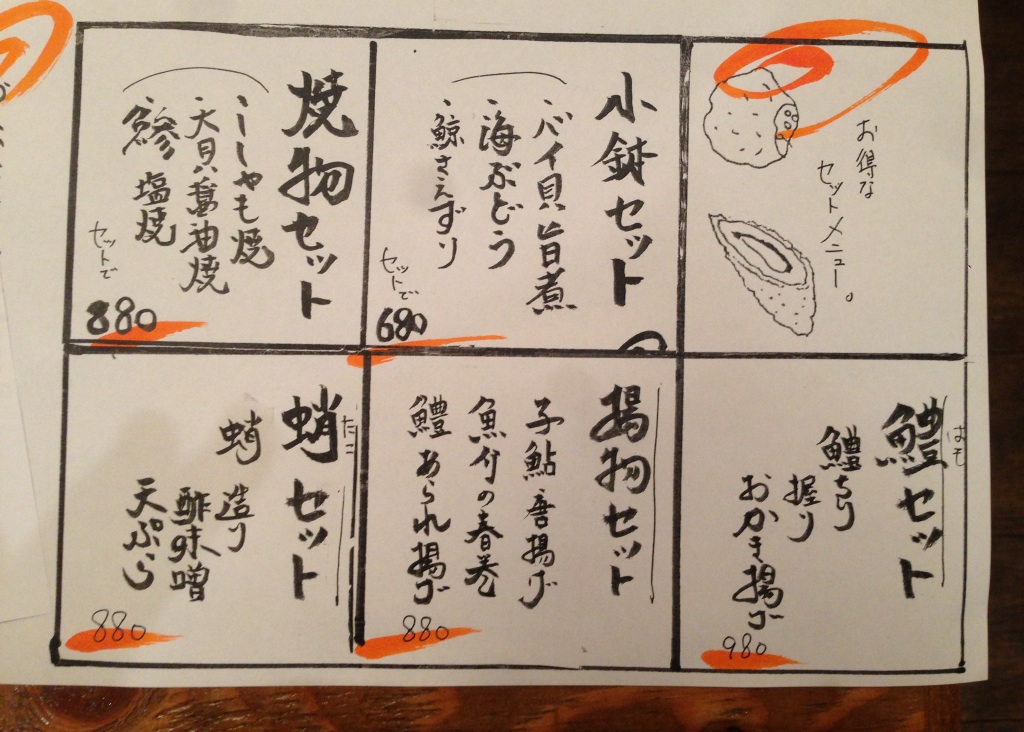 お得な
セットメニュー。
小鉢セット
・バイ貝旨煮
・海ぶどう
・鯨さえずり
セットで
680
焼物セット
・ししゃも焼
・大貝醤油焼
・鰺塩焼
セットで
880
はも
鱧セット
鱧ちり
握り
おかき揚げ
980
揚物セット
子鮎唐揚げ
魚付の春巻
鱧あられ揚げ
880
たこ
蛸セット
蛸 造り
酢味噌
天ぷら
880